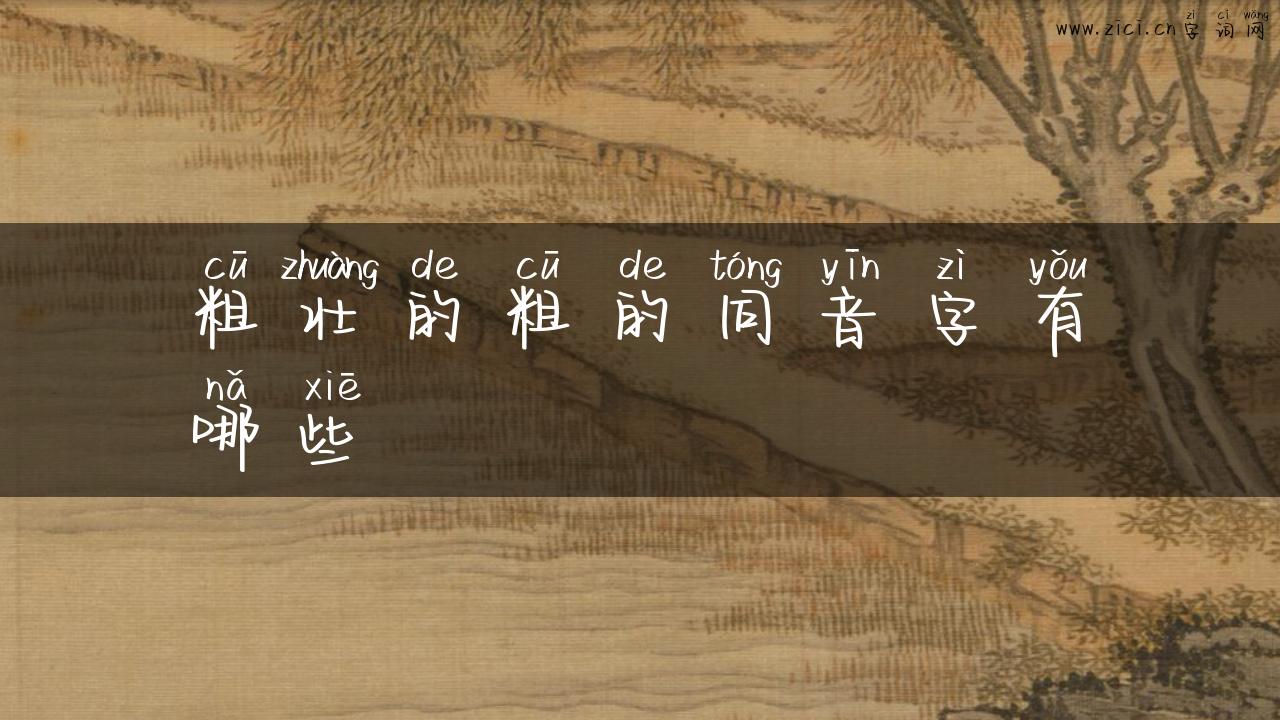 zì cí wǎng
www.zici.cn字词网
cū zhuàng de cū de tóng yīn zì yǒu
粗壮的粗的同音字有
nǎ xiē
哪些